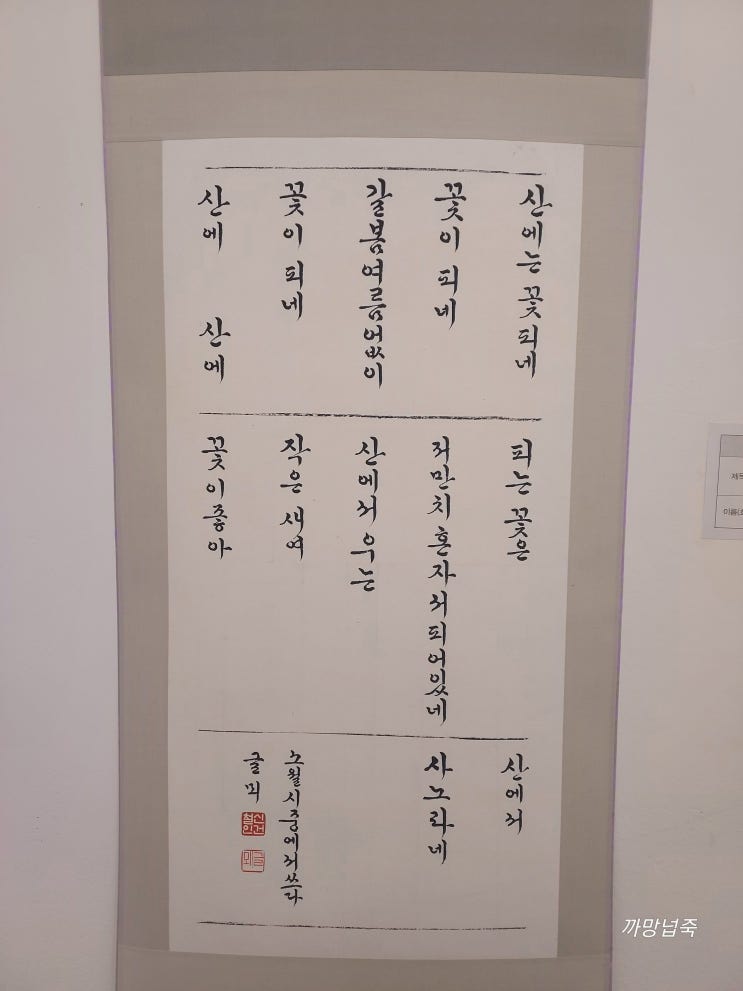 산에는 꽃피네
꽃이 피네
갈봄여름없이
꽃이 피네
산에 산에
피는 꽃은
저만치 혼자서피어있네
산에서 우는
작은 새여
꽃이좋아
산에서
사노라네
소월시중에서쓰다
글뫼
까망넙죽